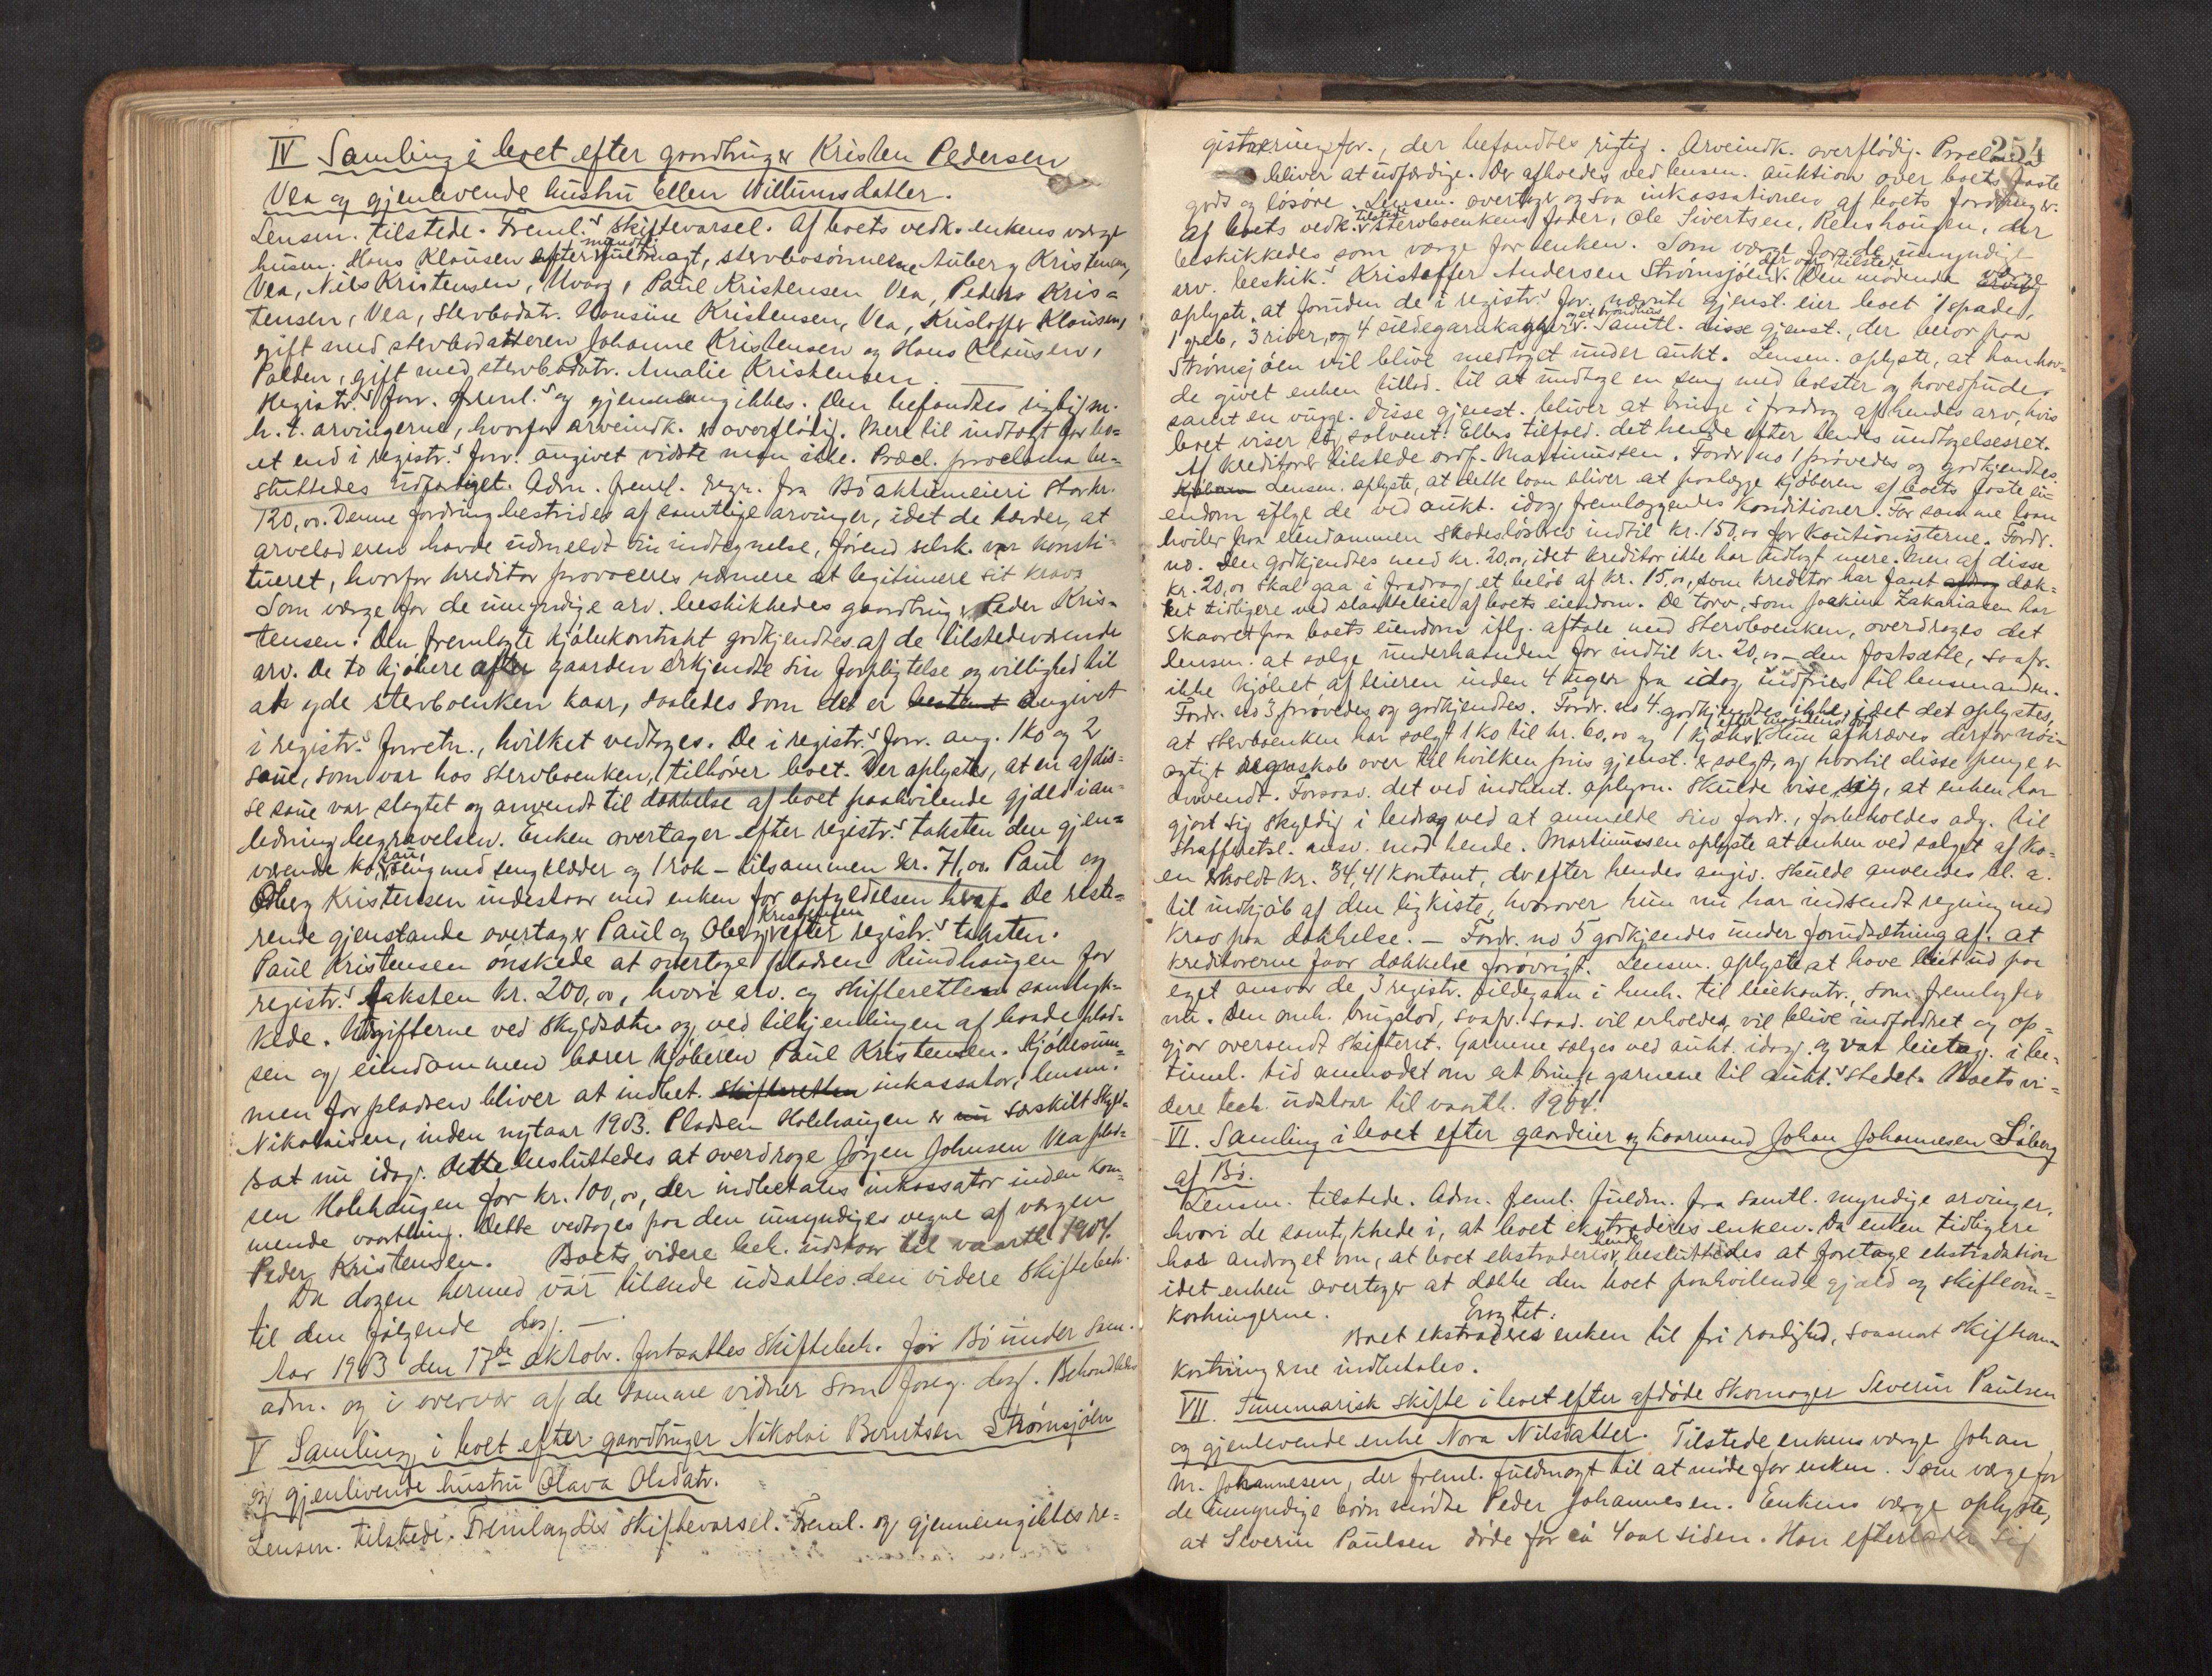 IV Samling i boet efter gaardbruger Kristen Pedersen
Vea og gjenlevende hustru Ellen Willumsdatter.
Lensm. tilstede. Freml.s skiftevarsel. Af boets vedk. enkens værge
husm. Hans Klausen efter mundtl. fuldmagt, stervbosønnerne Auberg Kristensen,
Vea, Nils Kristensen, Uvaag, Paul Kristensen Vea, Peder Kris=
tensen, Vea, stervbodatr. Hansine Kristensen, Vea, Kristoffer Klausen,
gift med stervbodatteren Johanne Kristensen og Hans Klausen,
Valden, gift med stervbodatr. Amalie Kristensen.
Registr.s forr. freml.s og gjennemgikkes. Den befandtes rigtig m.
h. t. arvingerne, hvorfor arveindk. er overflødig. Mere til indtægt for bo=
et end i registr.s forr. angivet vidste man ikke. Præcl. proclama be=
sluttedes udfærdiget. Adm. freml. regn. fra Bø aktiemeieri stor kr.
120,00. Denne fordring bestrides af samtlige arvinger, idet de hævder, at
arveladeren havde udmeldt sin indtegnelse, førend selsk. var konsti=
tueret, hvorfor kreditor provoceres nærmere at legitimere sit krav.
Som værge for de umyndige arv. beskikkedes gaardbruger Peder Kris=
tensen. Den fremlagte kjøbekontrakt godkjendtes af de tilstedeværende
arv. De to kjøbere af gaarden erkjendte sin forpligtelse og villighed til
at yde stervboenken kaar, saaledes som det er bestemt angivet
i registr.s forretn., hvilket vedtoges. De i registr.s forr. ang. 1 ko og 2
saue, som var hos stervboenken, tilhører boet. Der oplystes, at en af dis=
se saue var slagtet og anvendt til dækkelse af boet paahvilende gjæld i an=
ledning begravelsen. Enken overtager efter registr.s taksten den gjen=
værende ko, sau, seng med sengklæder og 1 rok – tilsammen kr. 71,00. Paul og
Oberg Kristensen indestaar med enken for opfyldelsen heraf. De reste=
rende gjenstande overtager Paul og Oberg Kristensen efter registr.s taksten.
Paul Kristensen ønskede at overtage pladsen Rundhaugen for
registr.s taksten kr. 200,00, hvori arv. og skifteretten samtyk=
kede. Udgifterne ved skyldsætn. og ved tilkjendingen af baade plad=
sen og eiendommen bærer kjøberen Paul Kristensen. Kjøbesum=
men for pladsen bliver at indbet. skifteretten inkassator, lensm.
Nikolaisen, inden nytaar 1903. Pladsen Holehaugen er nu særskilt skyld=
sat nu idag. Dette besluttedes at overdrage Jørgen Johnsen Vea plad=
sen Holehaugen for kr. 100,00, der indbetales inkassator inden kom=
mende vaarthing. Dette vedtoges paa den umyndiges vegne af værgen
Peder Kristensen. Boets videre beh. udstaar til vaarth. 1904.
Da dagen hermed var tilende udsattes den videre skiftebeh.
til den følgende dag. —
Aar 1903 den 17de oktobr. fortsattes skiftebeh. for Bø under sam.
adm. og i overvær af de samme vidner som foreg. dag. Behandledes
V Samling i boet efter gaardbruger Nikolai Berntsen Strømsjøen
og gjenlevende hustru Olava Olsdatr.
Lensm. tilstede. Fremlagdes skiftevarsel. Freml. og gjennemgikkes re=
254
gistreringsforr., der befandtes rigtig. Arveindk. overflødig. Proclama
bliver at udfærdige. Der afholdes ved lensm. auktion over boets faste
gods og løsøre. Lensm. overtager ogsaa inkassationen af boets fordringer.
Af boets vedk. tilstede stervboenkens fader, Ole Sivertsen, Renshaugen, der
beskikkedes som værge for enken. Som værge for de umyndige
arv. beskik.s Kristoffer Andersen Strømsjøen, der var tilstede. Den mødende værge
oplyste, at foruden de i registr.s for. nævnte gjenst. eier boet 1 spade,
1 greb, 3 river, og 4 sildegarnkagger og et brøndhus. Samtl. disse gjenst., der beror paa
Strømsjøen vil blive medtaget under aukt. Lensm. oplyste, at han hav=
de givet enken tillad. til at undtage en seng med bolster og hovedpude,
samt en vugge. Disse gjenst. bliver at bringe i fradrag af hendes arv, hvis
boet viser sig solvent. Ellers tilfald. det hende efter hendes undtagelsesret.
Af kreditorer tilstede ordf. Martinussen. Fordr no 1 prøvedes og godkjendtes.
Lensm. oplyste, at dette laan bliver at paalægge kjøberen af boets faste ei=
endom ifølge de ved aukt. idag fremlæggendes konditioner. For samme laan
hviler paa eiendommen skadesløsbrev indtil kr. 150,00 for kautionisterne. Fordr.
no. Den godkjendtes med kr. 20,00, idet kreditor ikke har indtagt mere. Men af disse
kr. 20,00 skal gaa i fradrag et beløb af kr. 15,00, som kreditor har faaet dæk=
ket tidligere ved slaatteleie af boets eiendom. De torv, som Joakim Zakariasen har
skaaret paa boets eiendom iflg. aftale med stervboenken, overdrages det
lensm. at sælge underhaanden for indtil kr. 20,00 – den fastsatte, saafr.
ikke kjøbet af leieren inden 4 uger fra idag indfries til lensmanden.
Fordr. no 3 prøvedes og godkjendtes. Fordr. no 4 godkjendtes ikke, idet det oplystes,
at stervboenken har solgt 1 ko til kr. 60,00 og 1 kjøks efter mandens død. Hun afkræves derfor nøi=
agtigt regnskab over til hvilken pris gjenst. er solgt, og hvortil disse penge er
anvendt. Forsaav. det ved indhent. oplysn. skulde vise sig, at enken har
gjort sig skyldig i bedrag ved at anmelde sin fordr., forbeholdes adg. til
strafferetsl. ansv. mod hende. Martinussen oplyste at enken ved salget af ko=
en erholdt kr. 34,41 kontant, der efter hendes angiv. skulde anvendes bl. a.
til indkjøb af den ligkiste, hvorover hun nu har indsendt regning med
krav paa dækkelse. – Fordr. no 5 godkjendes under forudsætning af. at
kreditorerne faar dækkelse forøvrigt. Lensm. oplyste at have leiet ud paa
eget ansvar de 3 registr. sildegarn i henh. til leiekontr., som fremlagdes
nu. Den omh. brugslod, saafr. saad. vil erholdes, vil blive indfordret og op=
gjør oversendt skifteret. Garnene sælges ved aukt. idag. og var leietag. i be=
timel. tid anmodet om at bringe garnene til aukt.s stedet. Boets vi=
dere beh. udstaar til vaarth. 1904.
VI. Samling i boet efter gaardeier og kaarmand Johan Johannesen Søberg
af Bø.
Lensm. tilstede. Adm. freml. fuldm. fra samtl. myndige arvinger,
hvori de samtykkede i, at boet ekstraderes enken. Da enken tidligere
har andraget om, at boet ekstraderes hende, besluttedes at foretage ekstradation
idet enken overtager at dække den boet paahvilende gjæld og skifteom=
kostningerne.
Eragtet:
Boet ekstraderes enken til fri raadighed, saasnart skifteom
kostningerne indbetales.
VII. Summarisk skifte i boet efter afdøde skomager Severin Paulsen
og gjenlevende enke Nora Nilsdatter. Tilstede enkens værge Johan
M. Johannesen, der freml. fuldmagt til at møde for enken. Som værge for
de umyndige børn mødte Peder Johannesen. Enkens værge oplyste,
at Severin Paulsen døde for ca 4 aar siden. Han efterlader sig